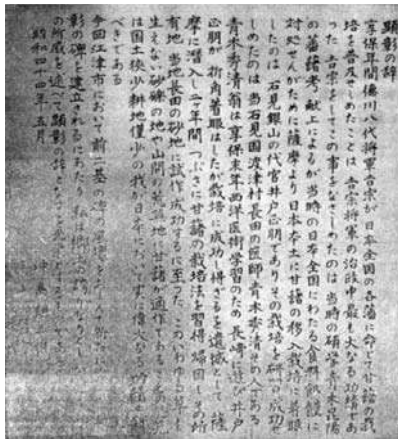 顕彰の辞
享保年間徳川八代将軍吉宗が日本全国の各藩に命じて甘藷の栽
培を普及せしめたことは吉宗将軍の治政中最も大なる功績であ
った 吉宗をしてこの事をなさしめたのは当時の碩学青木昆陽
の蕃藷考献上によるが当時の日本全国にわたる食料飢饉に
対処せんがために薩摩より日本本土に甘藷の移入栽培に着眼
したのは石見銀山の代官井戸正明でありその栽培を研究し成功せ
しめたのは当石見国渡津村長田の医師青木秀清その人である
青木秀清翁は享保末年西洋医術学習のため長崎に遊び井戸
正明が折角着眼はしたが栽培に成功し得ざるを遺憾として薩
摩に潜入し二ヶ年間つぶさに甘藷の栽培法を習得し帰国しその所
有地 当地長田の砂地に試作し成功するに至った
生えない砂礫の地や山間の荒蕪地に甘藷が適作である
は国土狭少耕地僅少の我が日本において実に偉大なる功績と
べきである
今回江津市において前二基の
彰の碑を建立されるにあたり私は郷土の誇りなりとし
の所感を述べて顕彰の辞と
昭和四十四年五月